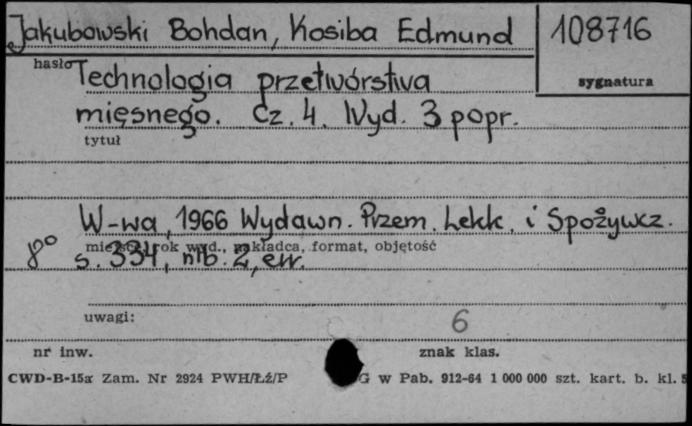 Jakubowski Bohdan, Kosiba Edmund
108716
hasło
sygnatura
Technologia przetwórstwa
mięsnego. Cz. 4. Wyd. 3 popr.
tytuł
W-wa, 1966 Wydawn. Przem. Lekk. i Spożywcz.
miejsce, rok wyd., nakładca, format, objętość
8° s. 334, nlb. 2, err.
uwagi:
6
nr inw.
znak klas.
CWD-B-15a Zam. Nr 2924 PWH/Łź/P
G w Pab. 912-64 1 000 000 szt. kart. b. kl. 5